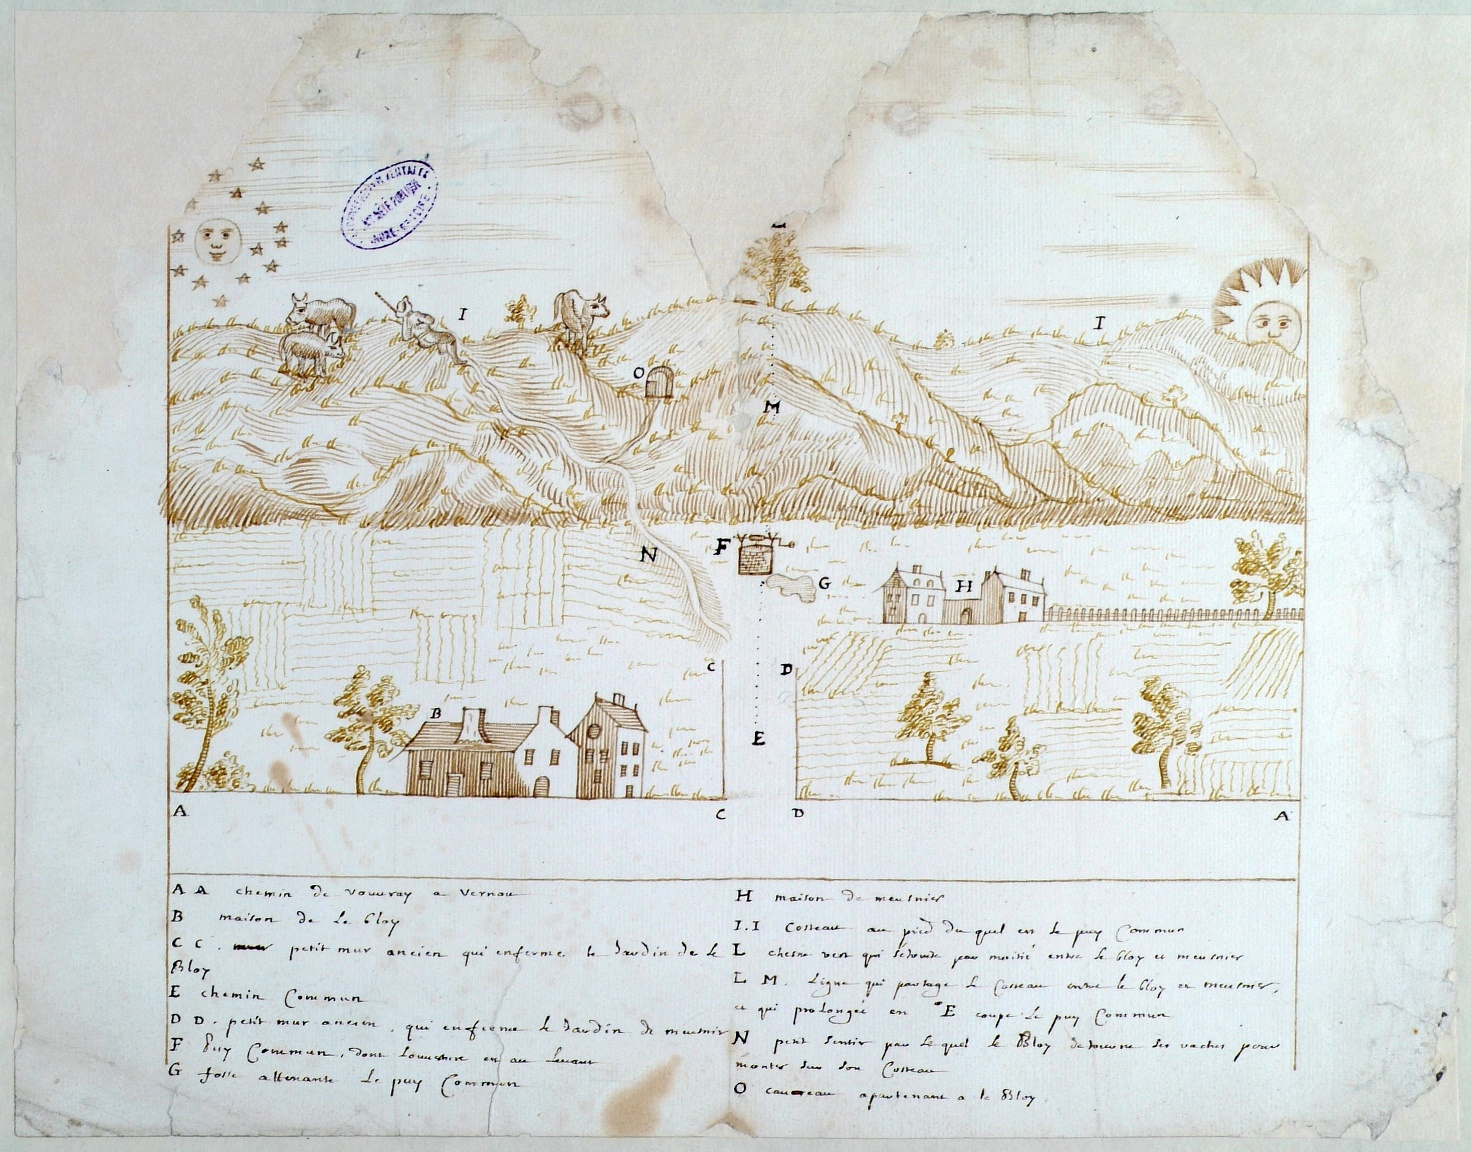 I
I
O
M
N
F
G
H
C
D
B
E
A
C
D
A
A A chemin de vouvray a Vernou
B maison de Le Bloy
C C. petit mur ancien qui enferme le Jardin de Le
Bloy
E chemin Commun
D D. petit mur ancien, qui enferme le Jardin de meusnier
F puy Commun, dont Louverture est au Levant
G fosse attenante Le puy Commun
H maison de meusnier
I.I Costeau au pied du quel est le puy Commun
L chesne vert qui par moitié entre le bloy et meusnier
L M. Ligne qui partage Le Costeau entre le bloy et meusnier,
et qui prolongée en E coupe Le puy Commun
N petit sentier par Le quel le Bloy destourne ses vaches pour
monter sur son Costeau
O caveau apartenant a le Bloy.